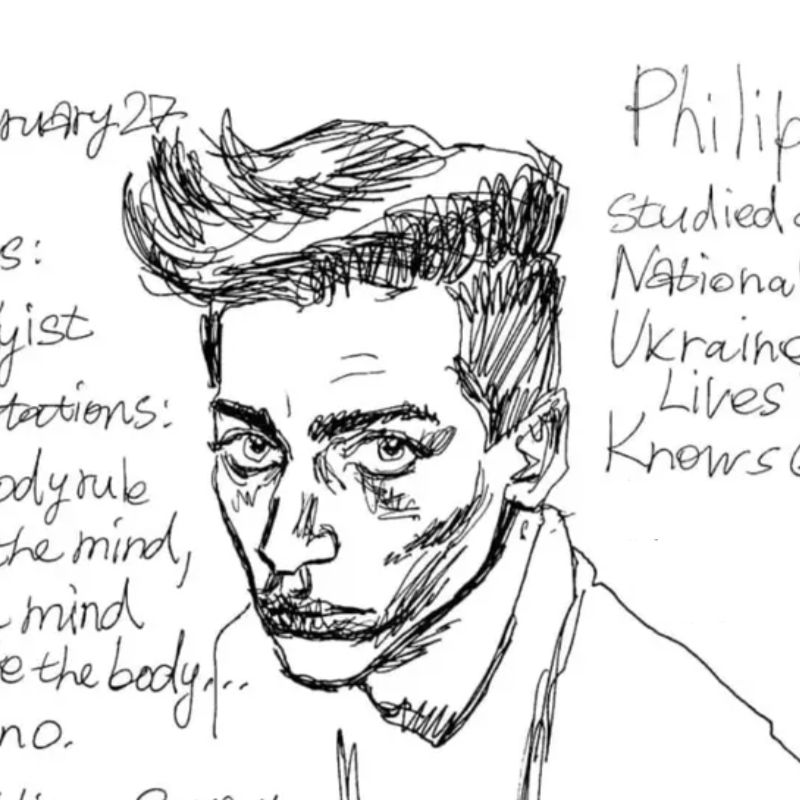 ruary 27
s:
yist
tations:
ody rule
the mind,
mind
e the body...
no.
Philip
studied
National
Ukraine
Lives
Knows